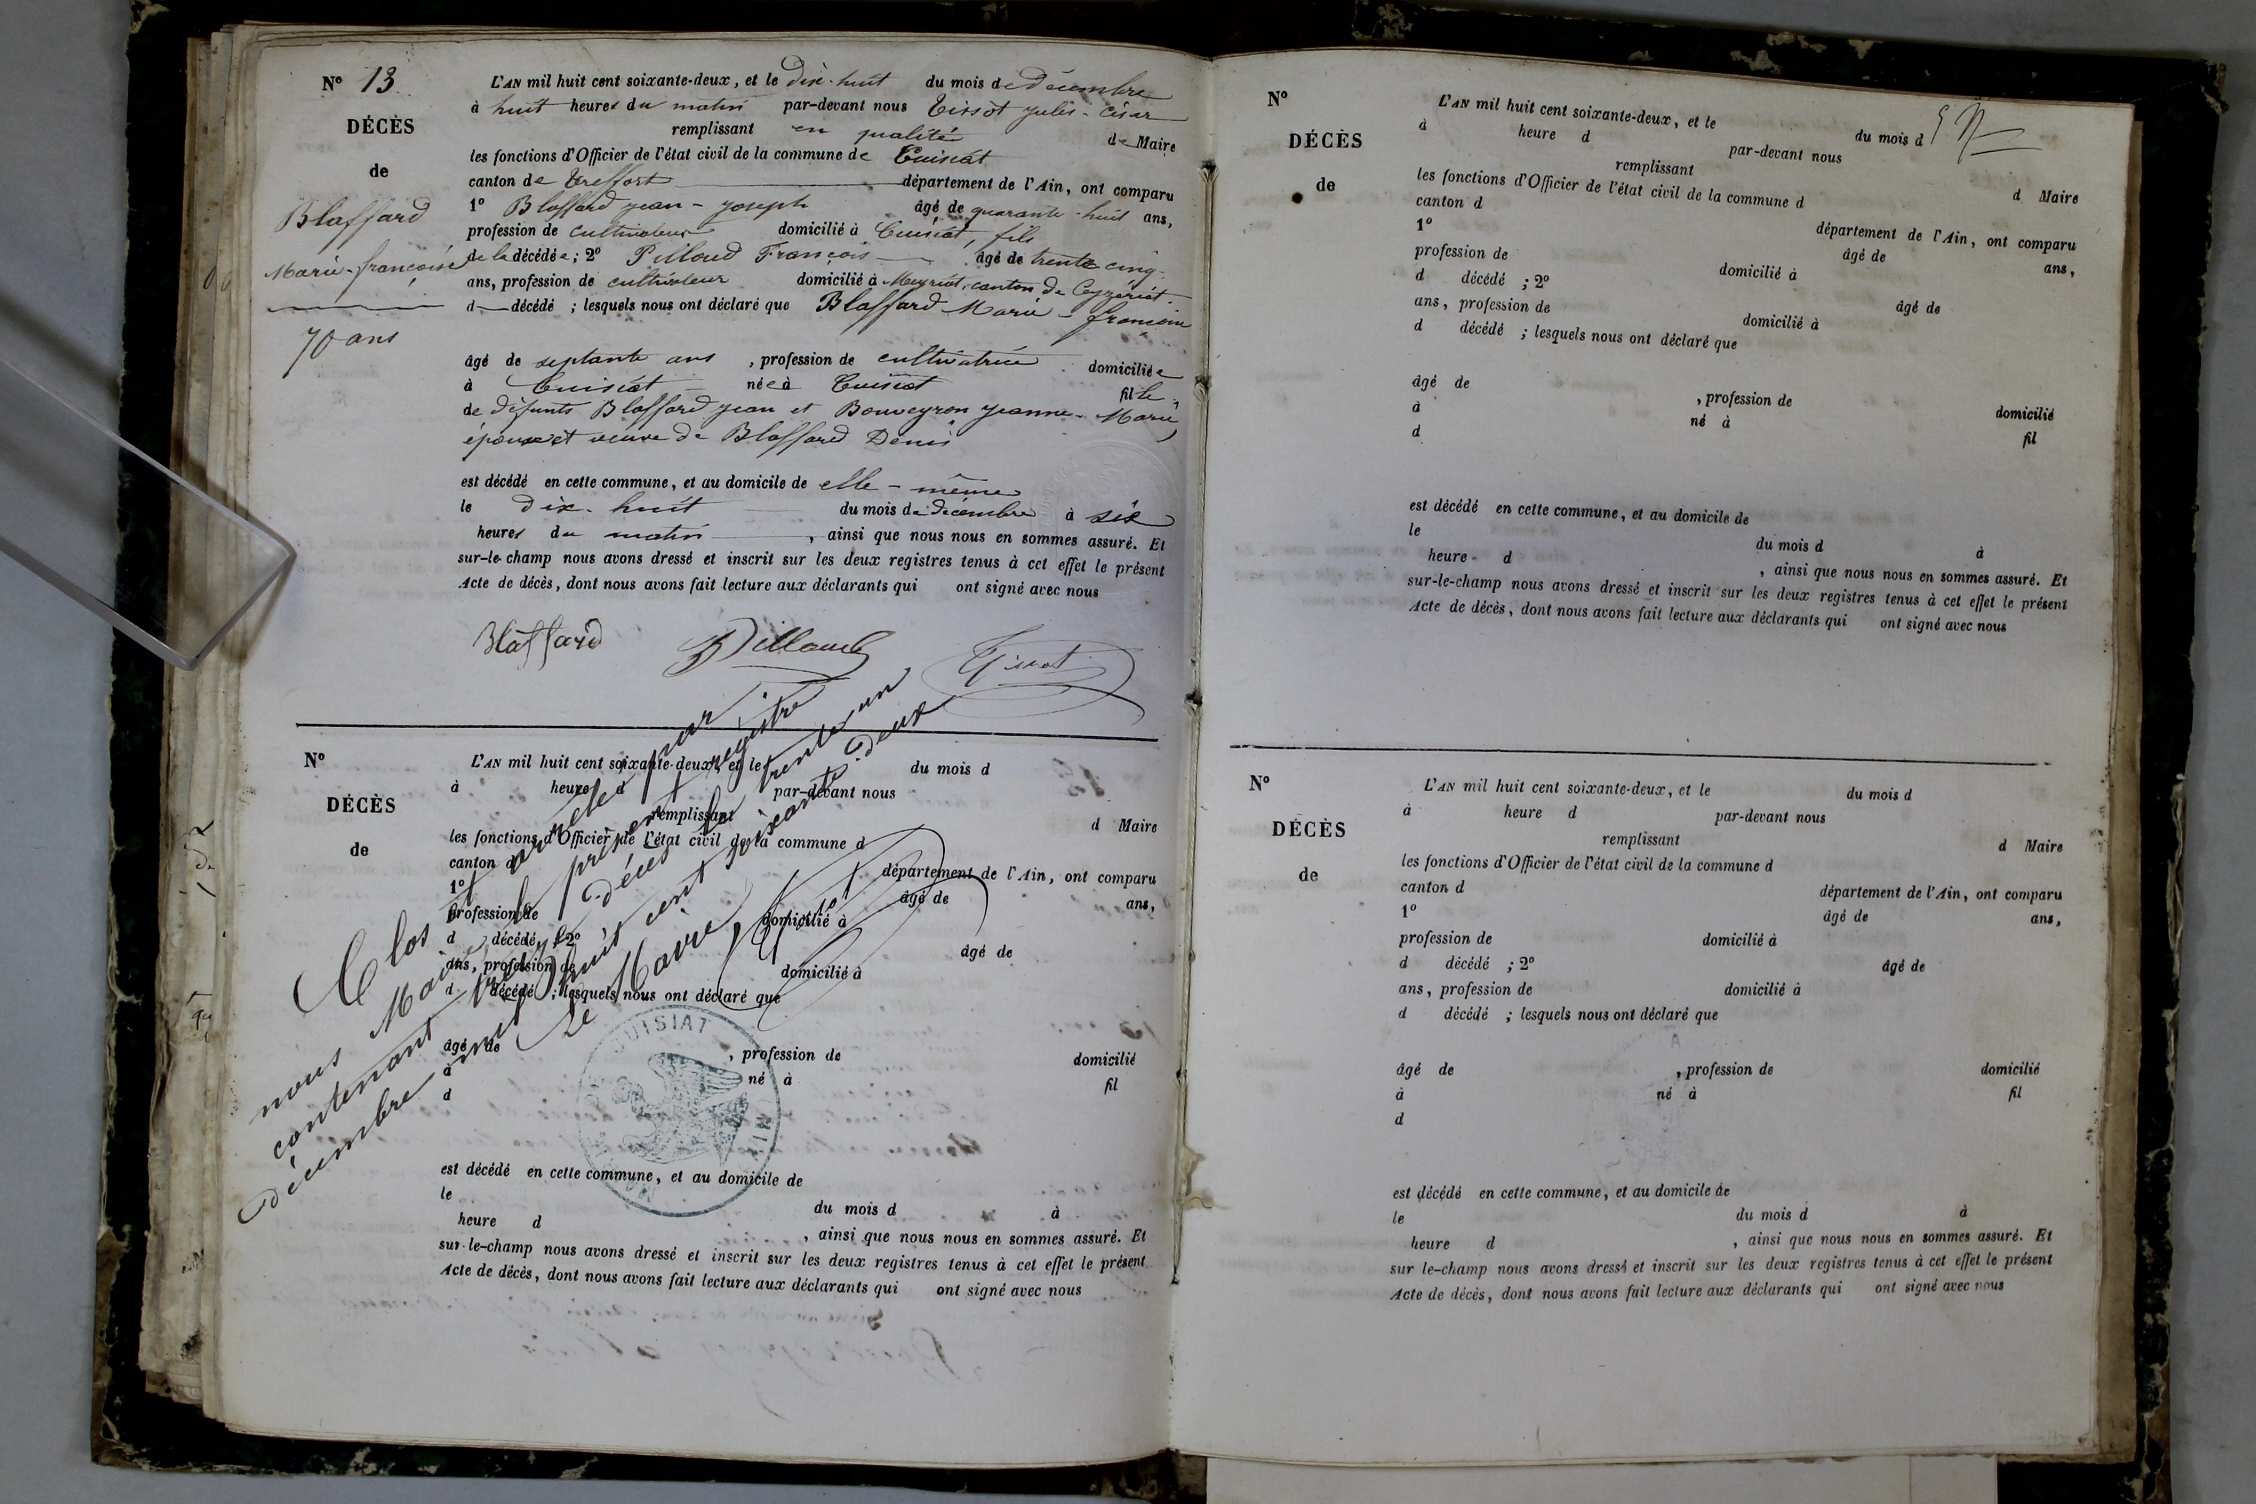 N° 13
DÉCÈS
de
Blaffard
Marie-françoise
70 ans
L'AN mil huit cent soixante-deux, et le dix-huit du mois de décembre
à huit heures du matin par-devant nous Tissot Jules-César
remplissant en qualité de Maire
les fonctions d'Officier de l'état civil de la commune de Cuisiat
canton de Treffort département de l'Ain, ont comparu
1° Blaffard Jean-Joseph âgé de quarante-huit ans,
profession de cultivateur domicilié à Cuisiat, fils
de la décédée; 2° Pilloud François âgé de trente cinq
ans, profession de cultivateur domicilié à Meyriat, canton de Ceyzériat.
d décédé ; lesquels nous ont déclaré que Blaffard Marie-françoise
âgé de septante ans, profession de cultivatrice domiciliée
à Cuisiat née à Cuisiat fille
de défunts Blaffard Jean et Bouveyron Jeanne-Marie,
épouse et veuve de Blaffard Denis
est décédé en cette commune, et au domicile de elle-même
le dix-huit du mois de décembre à six
heures du matin, ainsi que nous nous en sommes assuré. Et
sur-le-champ nous avons dressé et inscrit sur les deux registres tenus à cet effet le présent
Acte de décès, dont nous avons fait lecture aux déclarants qui ont signé avec nous
Blaffard Pilloud Tissot
N°
DÉCÈS
de
L'AN mil huit cent soixante-deux, et le du mois d
à heure d par-devant nous
remplissant d Maire
les fonctions d'Officier de l'état civil de la commune d
canton d département de l'Ain, ont comparu
1° âgé de ans,
profession de domicilié à
d décédé ; 2° âgé de
ans, profession de domicilié à
d décédé ; lesquels nous ont déclaré que
âgé de , profession de domicilié
à né à fil
d
est décédé en cette commune, et au domicile de
le du mois d à
heure d , ainsi que nous nous en sommes assuré. Et
sur-le-champ nous avons dressé et inscrit sur les deux registres tenus à cet effet le présent
Acte de décès, dont nous avons fait lecture aux déclarants qui ont signé avec nous
Clos et arrêté par
nous Maire le présent registre
contenant treize décès le trente un
décembre mil huit cent soixante-deux
Le Maire, Tissot
CUISIAT
N°
DÉCÈS
de
L'AN mil huit cent soixante-deux, et le du mois d
à heure d par-devant nous
remplissant d Maire
les fonctions d'Officier de l'état civil de la commune d
canton d département de l'Ain, ont comparu
1° âgé de ans,
profession de domicilié à
d décédé ; 2° âgé de
ans, profession de domicilié à
d décédé ; lesquels nous ont déclaré que
âgé de , profession de domicilié
à né à fil
d
est décédé en cette commune, et au domicile de
le du mois d à
heure d , ainsi que nous nous en sommes assuré. Et
sur-le-champ nous avons dressé et inscrit sur les deux registres tenus à cet effet le présent
Acte de décès, dont nous avons fait lecture aux déclarants qui ont signé avec nous
N°
DÉCÈS
de
L'AN mil huit cent soixante-deux, et le du mois d
à heure d par-devant nous
remplissant d Maire
les fonctions d'Officier de l'état civil de la commune d
canton d département de l'Ain, ont comparu
1° âgé de ans,
profession de domicilié à
d décédé ; 2° âgé de
ans, profession de domicilié à
d décédé ; lesquels nous ont déclaré que
âgé de , profession de domicilié
à né à fil
d
est décédé en cette commune, et au domicile de
le du mois d à
heure d , ainsi que nous nous en sommes assuré. Et
sur le-champ nous avons dressé et inscrit sur les deux registres tenus à cet effet le présent
Acte de décès, dont nous avons fait lecture aux déclarants qui ont signé avec nous